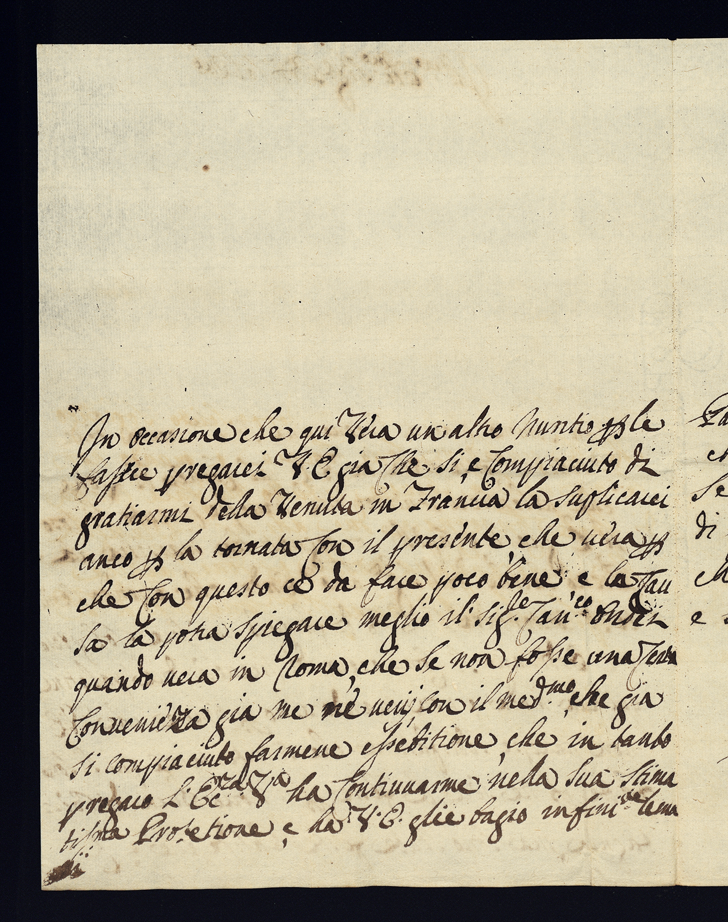 In occasione che qui verà un altro Nuntio per le
fascie pregarei V. E. già che si è compiaciuto di
gratiarmi della venuta in Francia la suplicarei
anco per la tornata con il presente, che verà per
che con questo cè da fare poco bene e la cau
sa la potra spiegare meglio il Sig.re Cau.co
quando vera in Roma, che se non fosse una certa
convenienza già me ne venij con il med.mo, che già
si compiaciuto farmene essebitione, che in tanto
pregaro L'Ec.za V.a ha continuarme nella sua stima
tisma Protetione, e ha V. E. glie bagio infini.te le ma
ni
Pa
di
e